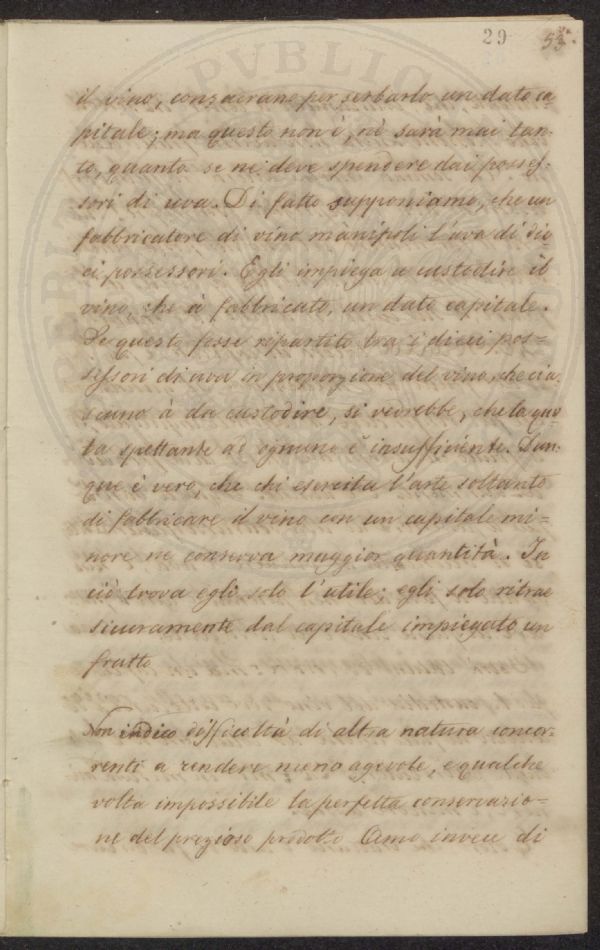 29 53.
il vino, consacrano per serbarlo un dato ca
pitale; ma questo non è, nè sarà mai tan-
to, quanto se ne deve spendere dai posses-
sori di uva. Di fatto supponiamo, che un
fabbricatore di vino manipoli l'uva di die
ci possessori. Egli impiega a custodire il
vino, che à fabbricato, un dato capitale.
Se questo fosse ripartito tra i dieci pos=
sessori di uva in proporzione del vino, che cia
scuno à da custodire, si vedrebbe, che la quo
ta spettante ad ognuno è insufficiente. Dun-
que è vero, che chi esercita l'arte soltanto
di fabbricare il vino con un capitale mi=
nore ne conserva maggior quantità. In
ciò trova egli solo l'utile; egli solo ritrae
sicuramente dal capitale impiegato un
frutto
Non indico difficoltà di altra natura concor-
renti a rendere meno agevole, e qualche
volta impossibile la perfetta conservazio=
ne del prezioso prodotto. Amo invece di
PVBLIC